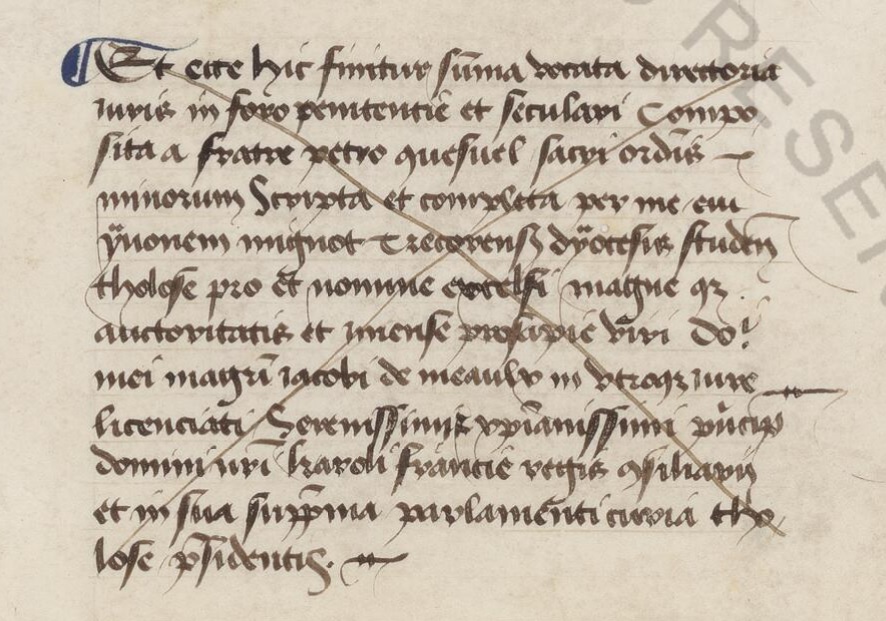 Et ecce hic finitur sũma vocata directoria
iuris in foro penitentiẽ et seculari Compo
sita a fratre petro quesuel sacri ordĩs
minorum Scripta et completa per me
ÿuonem mignot Trecorenß dÿocesis studen̄
tholose pro et nomine excelsi magne qꝫ
auctoritatis et ĩmense prosapie viri do
mei magr̃i iacobi de meaulx in vtroqꝫ iure
licenciati Serenissimi xp̃ianissimi prĩcip̃
domini nr̃i karoli francie regis ꝯsiliarii
et in sua supp̃ma parlamenti curia tho
lose p̃sidentis.
RESE